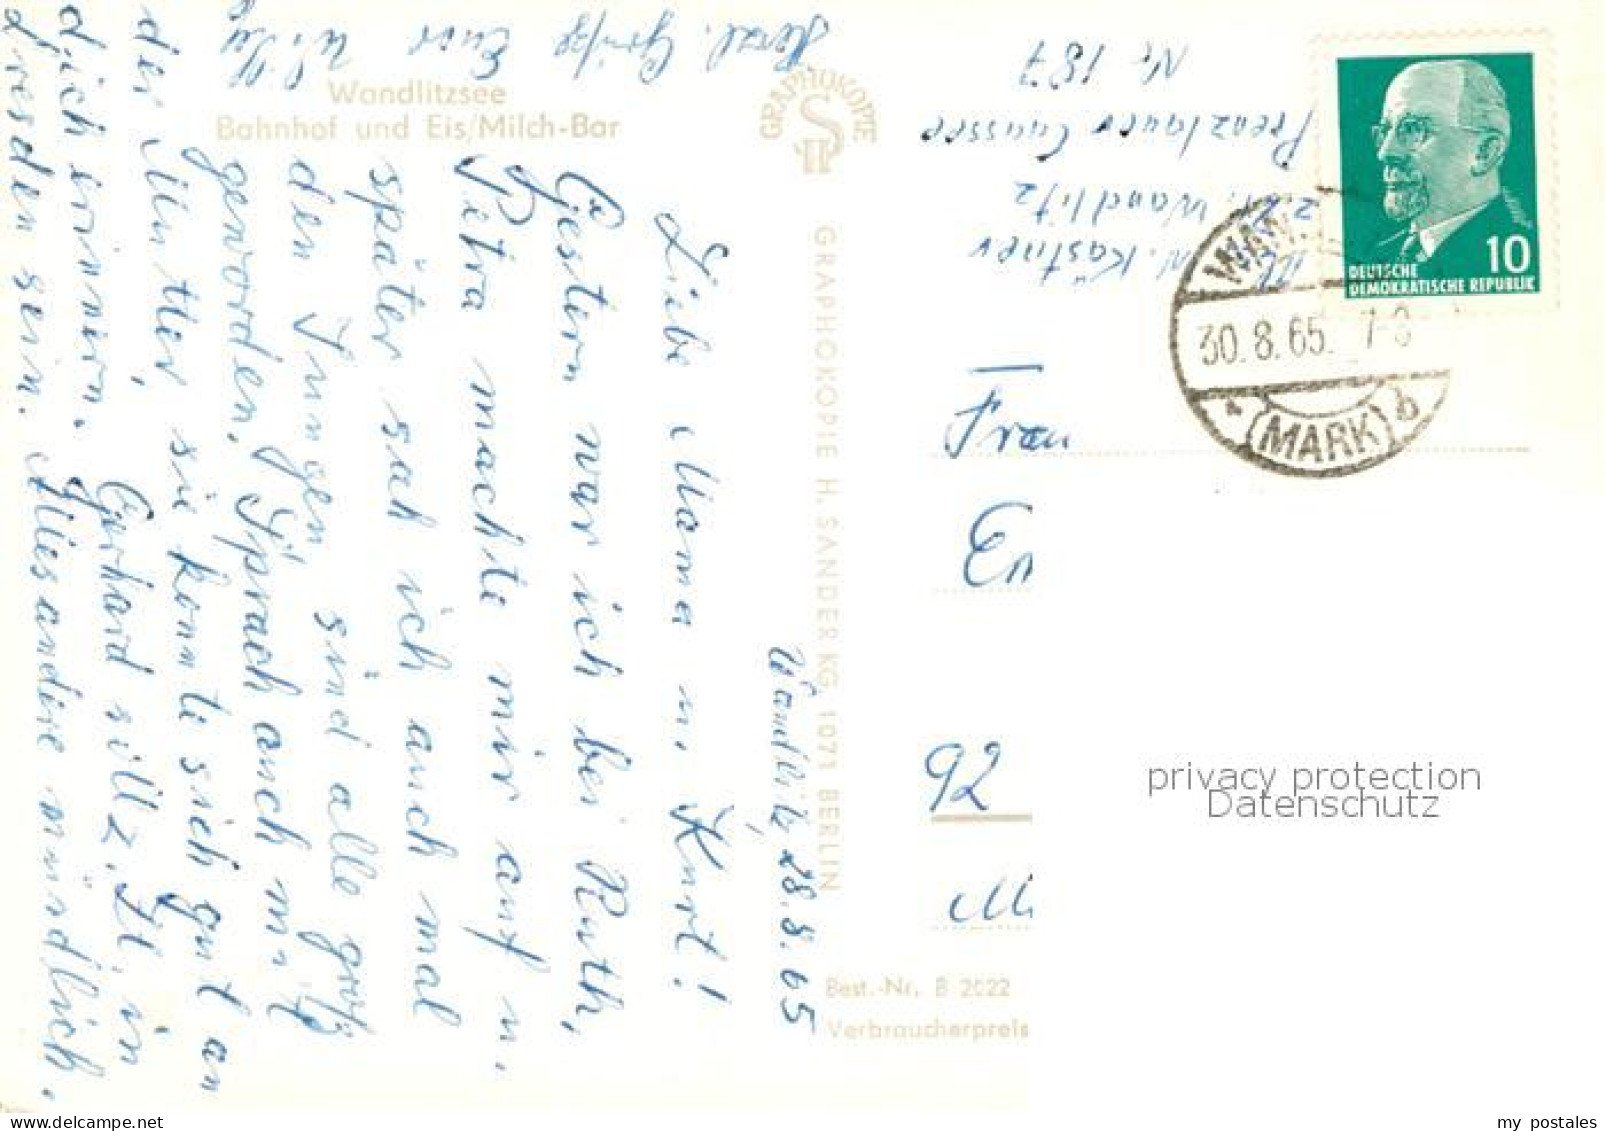 Wandlitzsee
Bahnhof und Eis/Milch-Bar
GRAPHOKOPIE
GRAPHOKOPIE H. SANDER KG 1071 BERLIN
Best.-Nr. B 2022
Verbraucherpreis
Wandlitz, 28.8.65
Liebe Mama u. Kurt!
Gestern war ich bei Ruth,
Petra machte mir auf u.
später sah ich auch mal
den Jungen, sind alle groß
geworden. Sprach auch mit
der Mutter, sie konnte sich gut an
dich erinnern. Gerhard sill z. Zt. in
Dresden sein. Alles andere mündlich.
Herzl. Grüße Euer Willi
W. Kästner
z. Zt. Wandlitz
Prenzlauer Causse
Nr 187
DEUTSCHE
DEMOKRATISCHE REPUBLIK
10
30.8.65. 7-8
(MARK)
b
Frau
En
92
privacy protection
Datenschutz
www.delcampe.net
my_postales